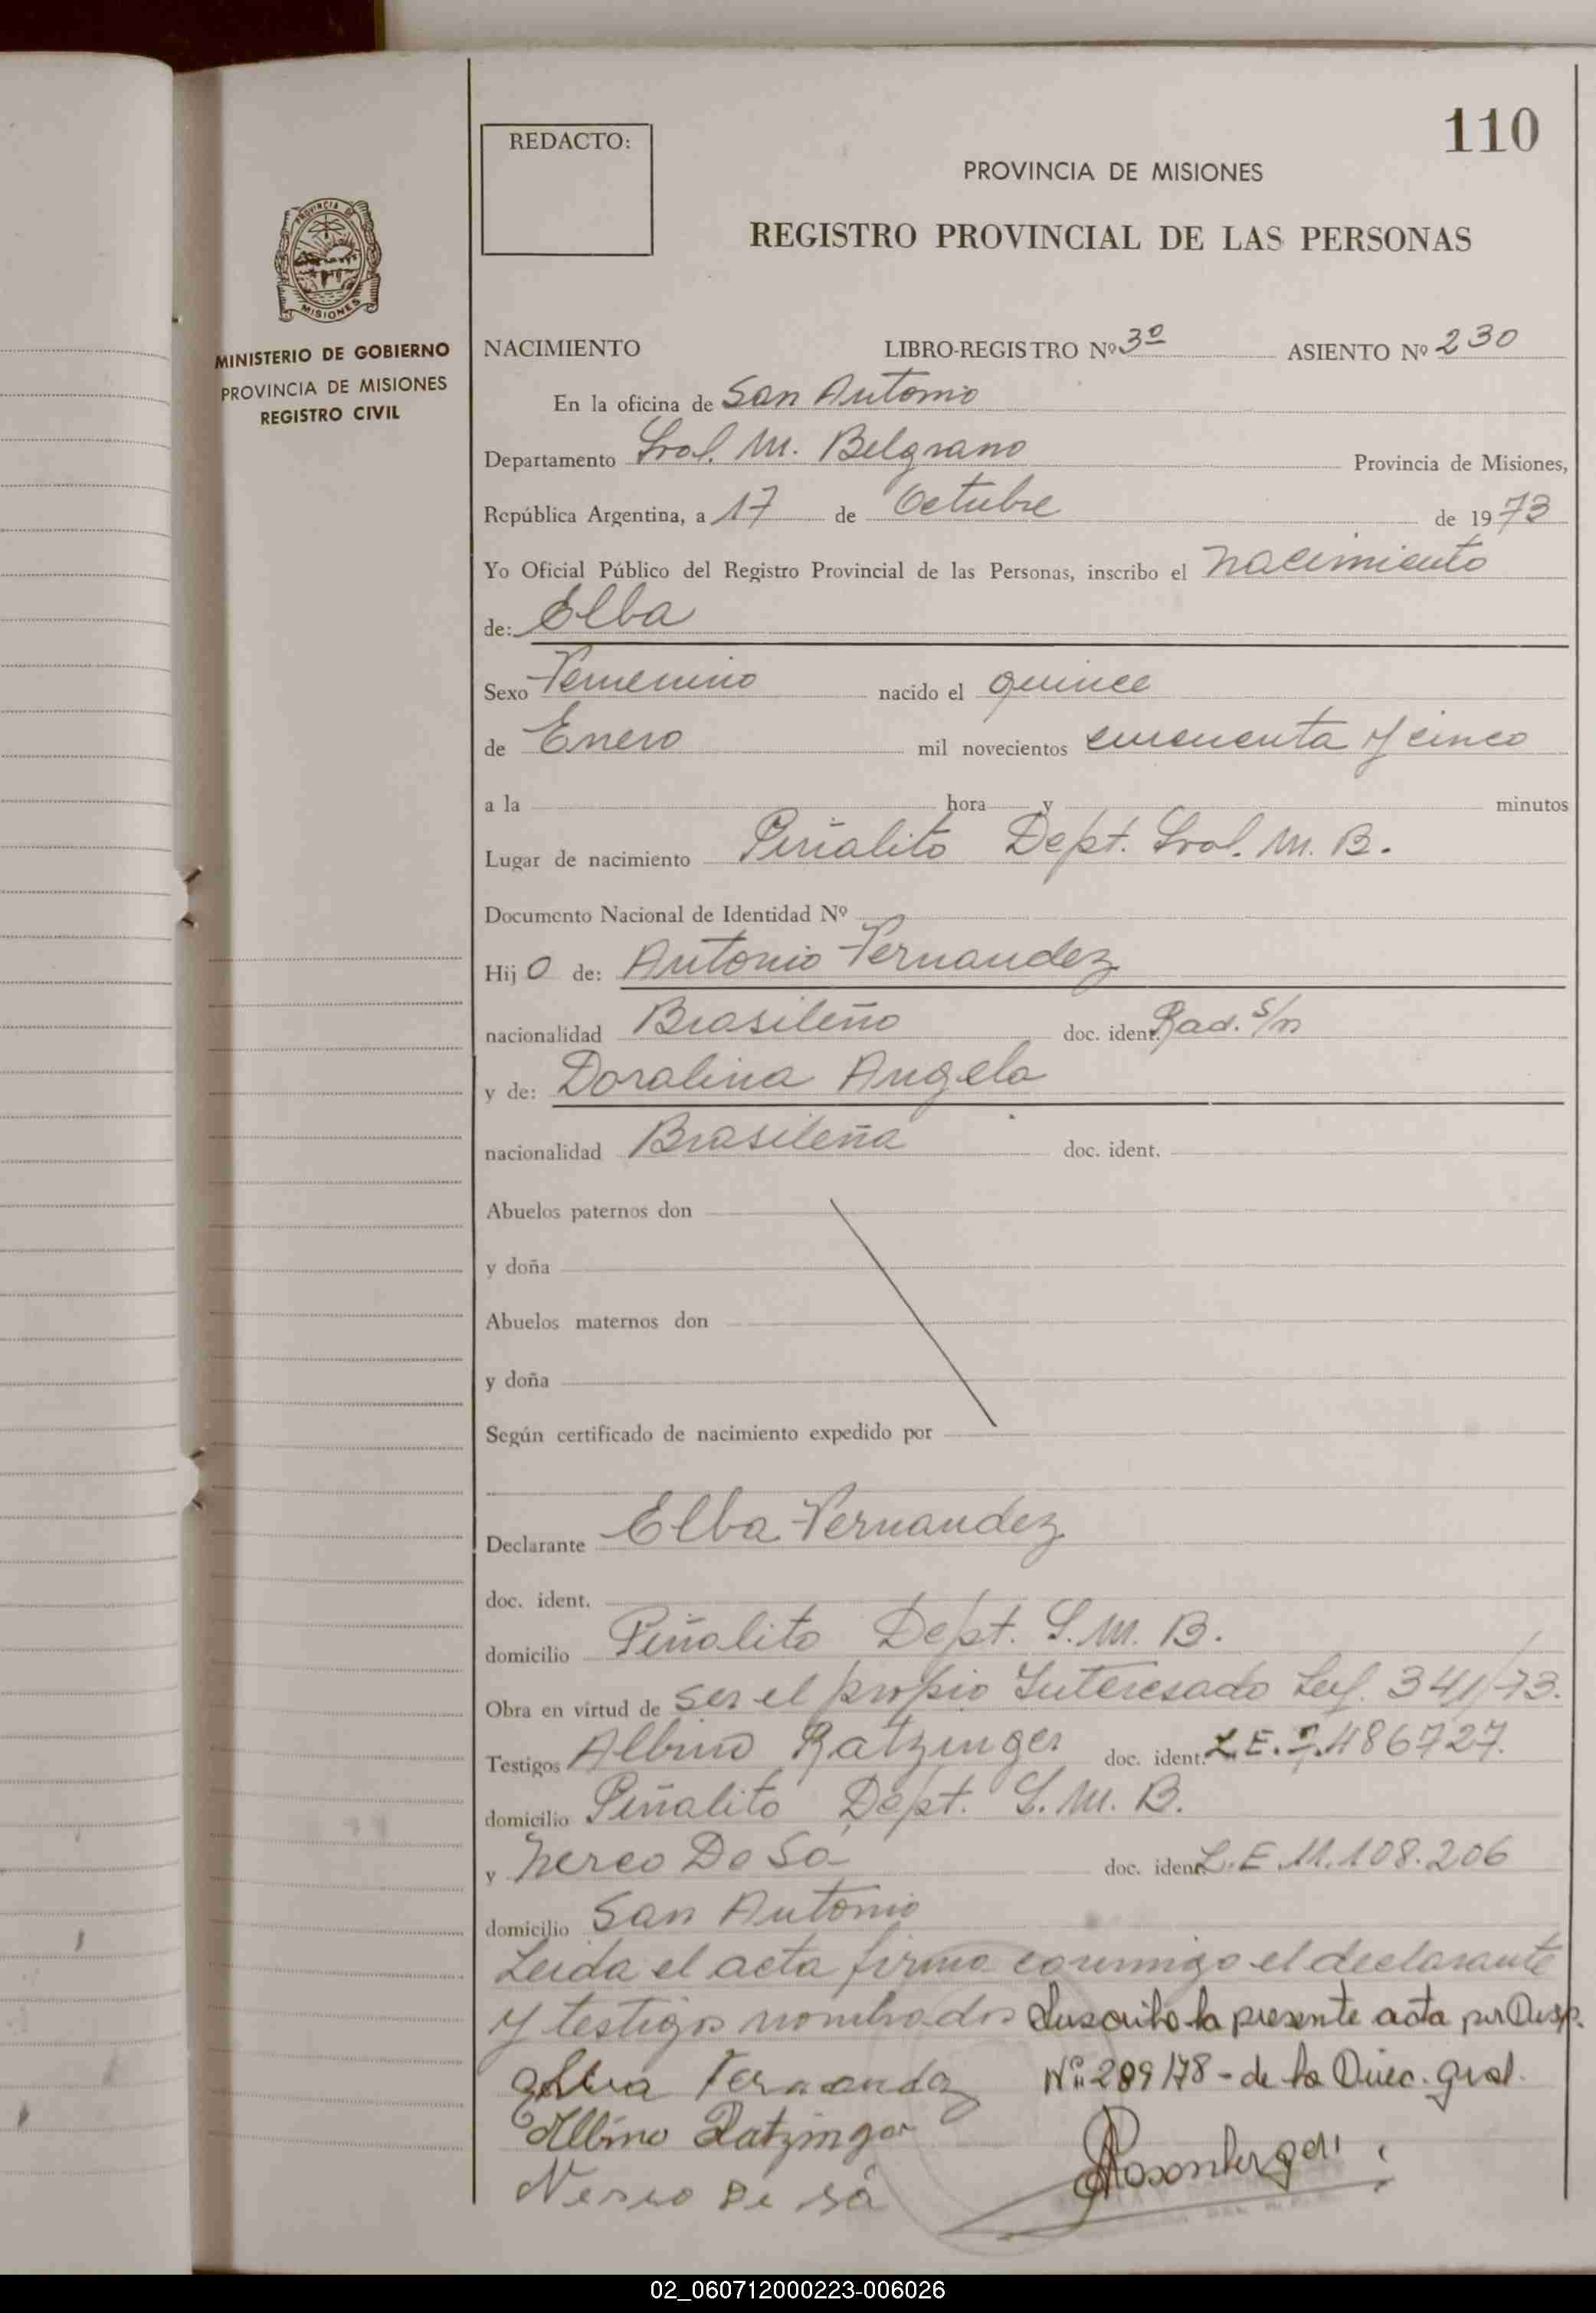 110
REDACTO:
PROVINCIA DE MISIONES
REGISTRO PROVINCIAL DE LAS PERSONAS
PROVINCIA DE
MISIONES
MINISTERIO DE GOBIERNO
PROVINCIA DE MISIONES
REGISTRO CIVIL
NACIMIENTO LIBRO-REGISTRO Nº 3º ASIENTO Nº 230
En la oficina de San Antonio
Departamento Gral. M. Belgrano Provincia de Misiones,
República Argentina, a 17 de Octubre de 1973
Yo Oficial Público del Registro Provincial de las Personas, inscribo el nacimiento
de: Elba
Sexo Femenino nacido el quince
de Enero mil novecientos cincuenta y cinco
a la hora y minutos
Lugar de nacimiento Piñalito Dept. Gral. M. B.
Documento Nacional de Identidad Nº
Hijo de: Antonio Fernandez
nacionalidad Brasileño doc. ident. Rad. s/n
y de: Doralina Angela
nacionalidad Brasileña doc. ident.
Abuelos paternos don
y doña
Abuelos maternos don
y doña
Según certificado de nacimiento expedido por
Declarante Elba Fernandez
doc. ident.
domicilio Piñalito Dept. G. M. B.
Obra en virtud de ser el propio Interesado Ley. 341/73.
Testigos Albino Ratzinger doc. ident. L.E. 7.486727.
domicilio Piñalito Dept. G. M. B.
y Nereo De Sá doc. ident. L.E 11.108.206
domicilio San Antonio
Leida el acta firma conmigo el declarante
y testigos nombrados Suscribo la presente acta por Disp.
Nº 289/78 - de la Direc. gral.
Fernandez
Albino Ratzinger
Nereo De Sá
02_060712000223-006026